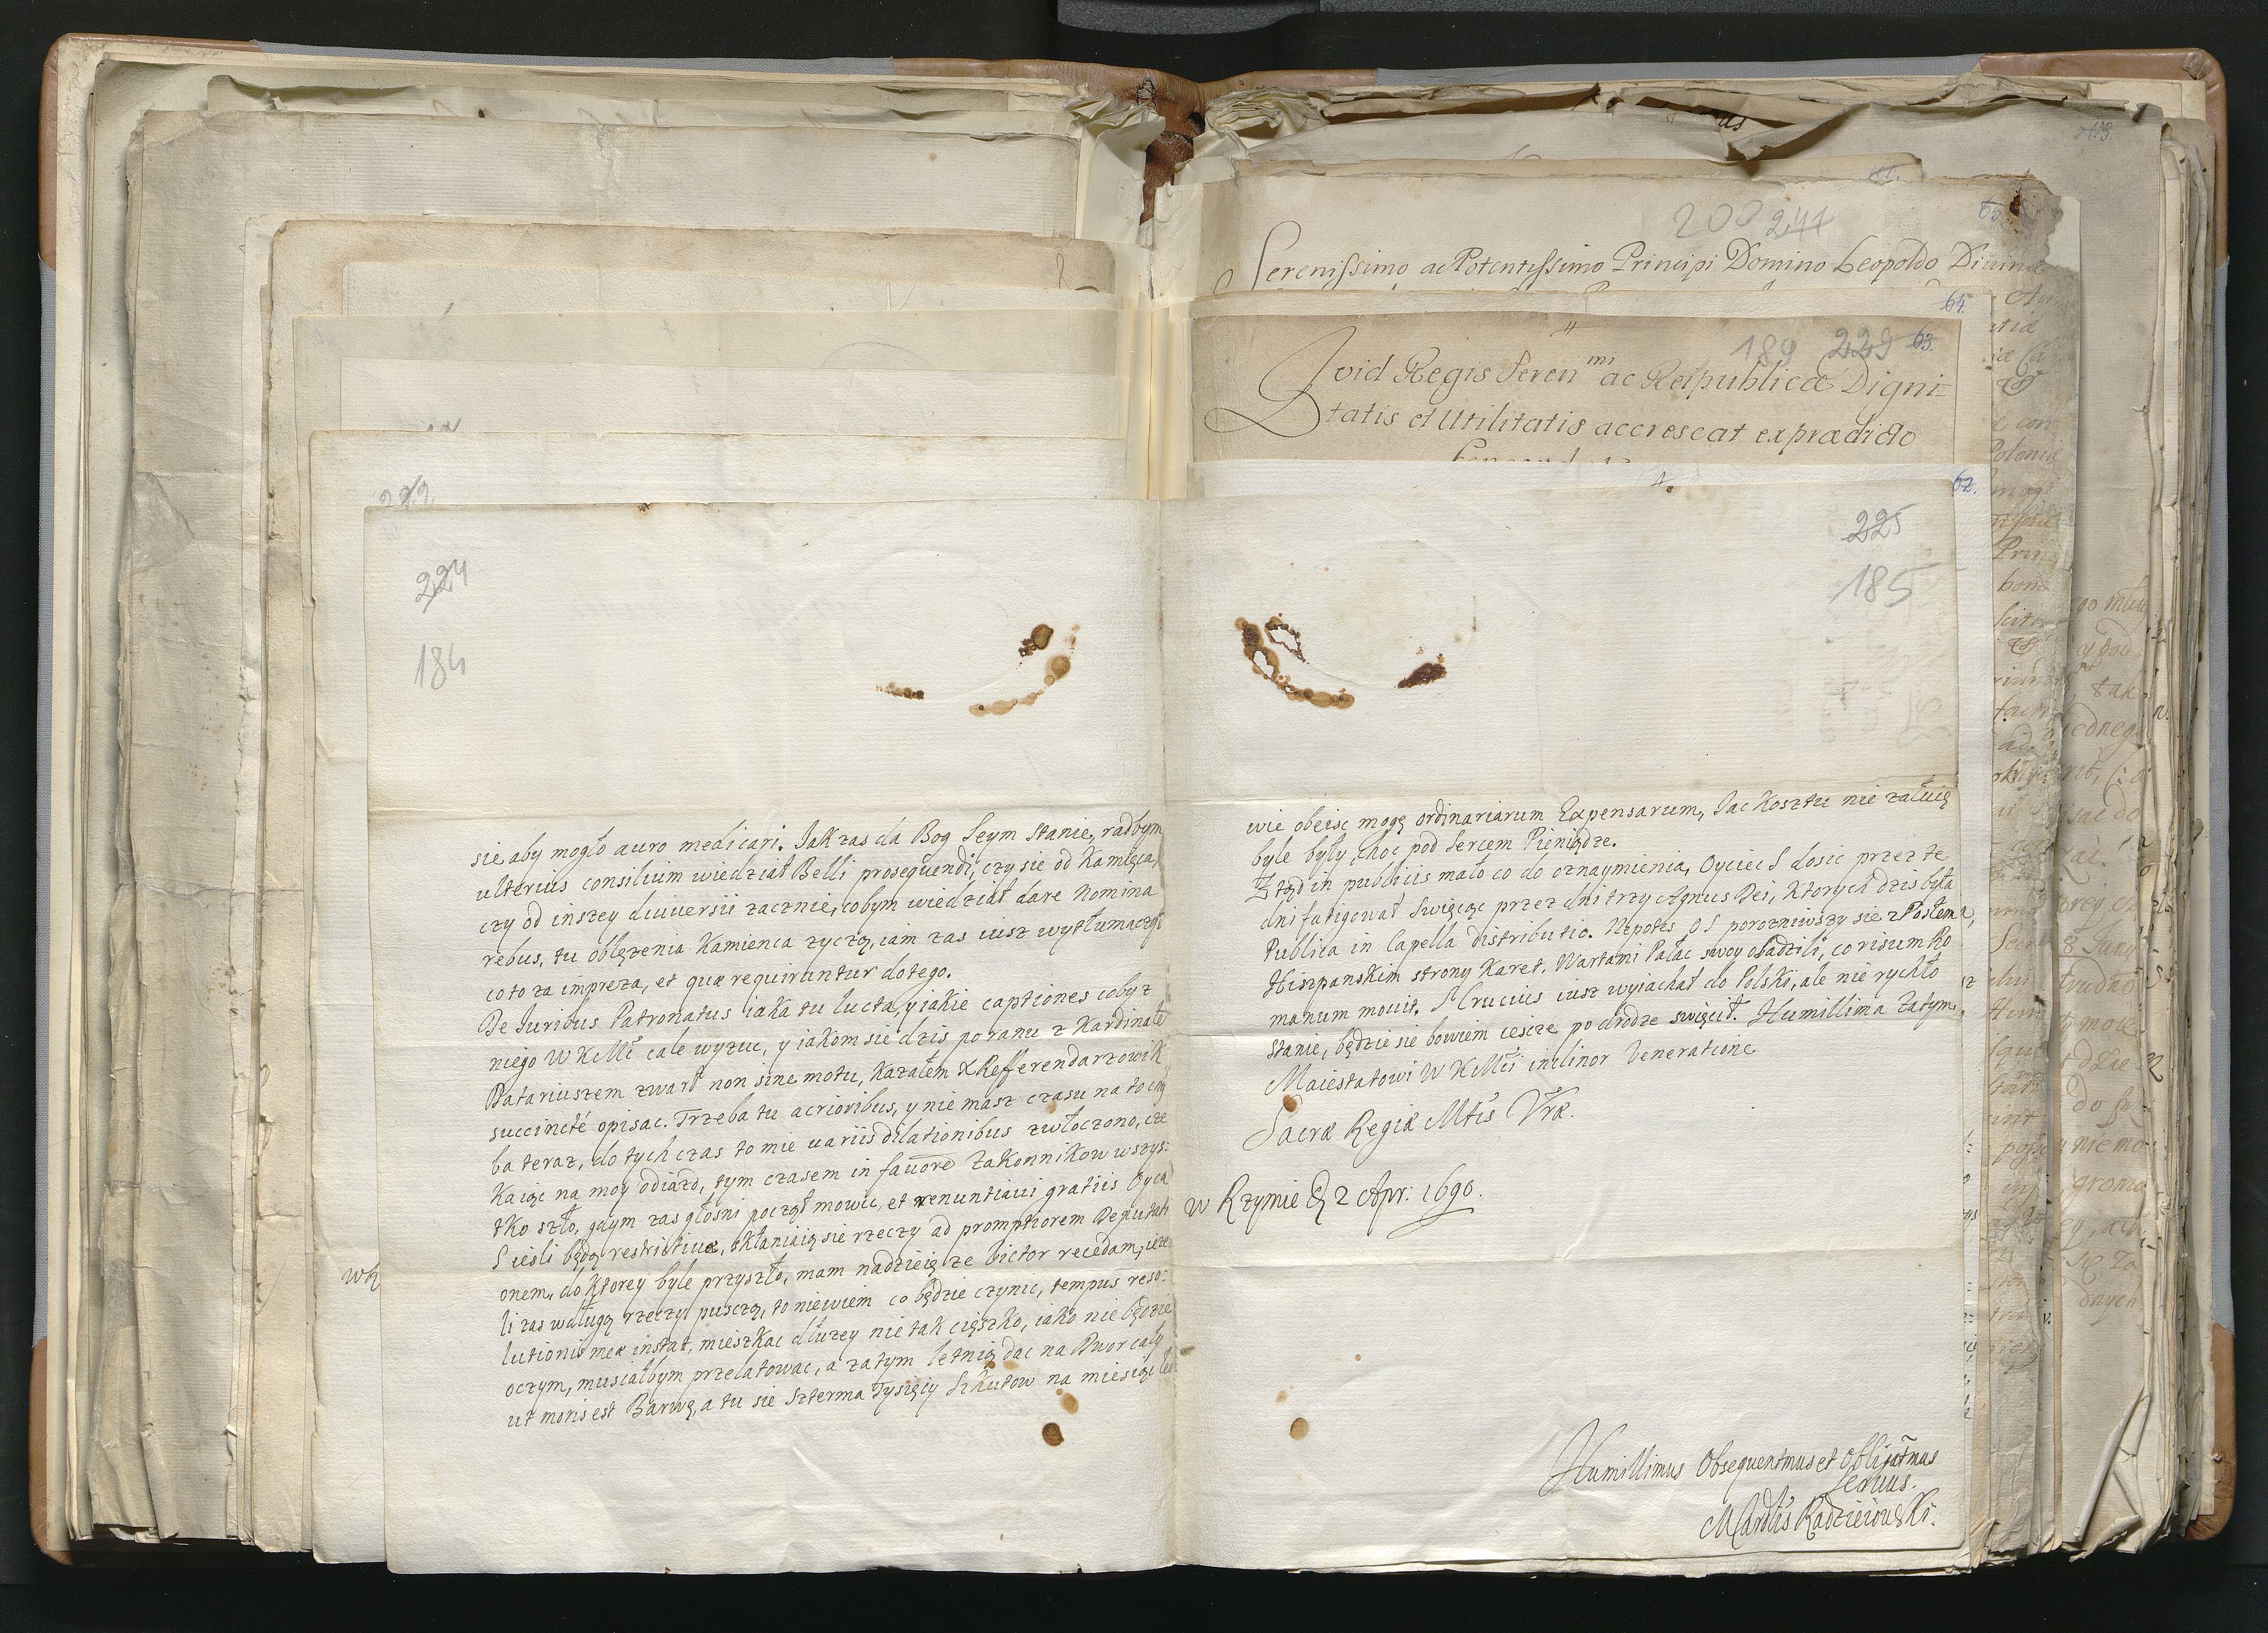 224
184
sie aby mogło auro medicari. Jak zas da Bog Seym stanie, radbym
ulterius consilium wiedział Belli prosequendi, czy sie od Kamięca,
czy od inszey diuersii zacznie, cobym wiedział dare nomina
rebus, tu oblęzenia Kamienca zyczą, iam zas iusz wytłumaczył
co to za impreza, et quæ requiruntur do tego.
De Juribus Patronatus iaka tu lucta, y iakie captiones coby z
niego WKMć cale wyzuc, y iakom sie dzis po ranu z Kardinałe
Datariuszem zwarł non sine motu, kazałem X Refferendarzowi
succincté opisac. Trzeba tu acrioribus, y nie masz czasu na to
ba teraz, do tych czas to mie uariis dilationibus zwłoczono, cze
kaiąc na moy odiazd, tym czasem in fauore Zakonnikow wszys:
tko szło, gdym zas głosni począł mowic, et renuntiaui gratiis Oyca
S iesli będą restrictiuæ, skłaniaią sie rzeczy ad promptiorem Deputati
onem, do ktorey byle przyszło, mam nadzieię ze victor recedam, ieze
li zas wdługą rzeczy puszczą, to niewiem co będzie czynic, tempus reso:
lutionis meæ instat, mieszkac dłuzey nie tak cięszko, iako nie będzie
o czym, musiałbym przelatowac, a zatym letnią dac na Dwor cały
ut moris est Barwę, a tu sie szterma Tysięcy Szkutow na miesiąc led
WK
225
185
62.
wie obeisc mogę ordinariarum Expensarum, Jac kosztu nie załuię
byle były, choc pod sercem Pieniądze.
Z tąd in publicis mało co do oznaymienia, Oyciec S dosic przez te
dni fatigował Swięcąc przez dni trzy Agnus Dei, ktorych dzis była
Publica in Capella distributio. Nepotes OS porozniwszy sie z Posłem
Hiszpanskim strony Karet. Wartami Pałac swoy obsadzili, co risum Ro
manum mouit. S Crucius iusz wyiachał do Polski, ale nie rychło
stanie, będzie sie bowiem iescze po drodze swięcił. Humillima zatym
Maiestatowi WKMći inclinor Veneratione
Sacræ Regiæ Mtis Vræ.
W Rzymie D 2 Apr: 1690.
Humillimus Obsequentmus et Obligatmus
Seruus.
M Cardlis Radzieiowski.
200 244
Serenissimo ac Potentissimo Principi Domino Leopoldo Diuina
64.
189 229 63.
Qvid Regis Seren mi ac Reipublicæ Digni-
tatis et Utilitatis accrescat ex prædicto